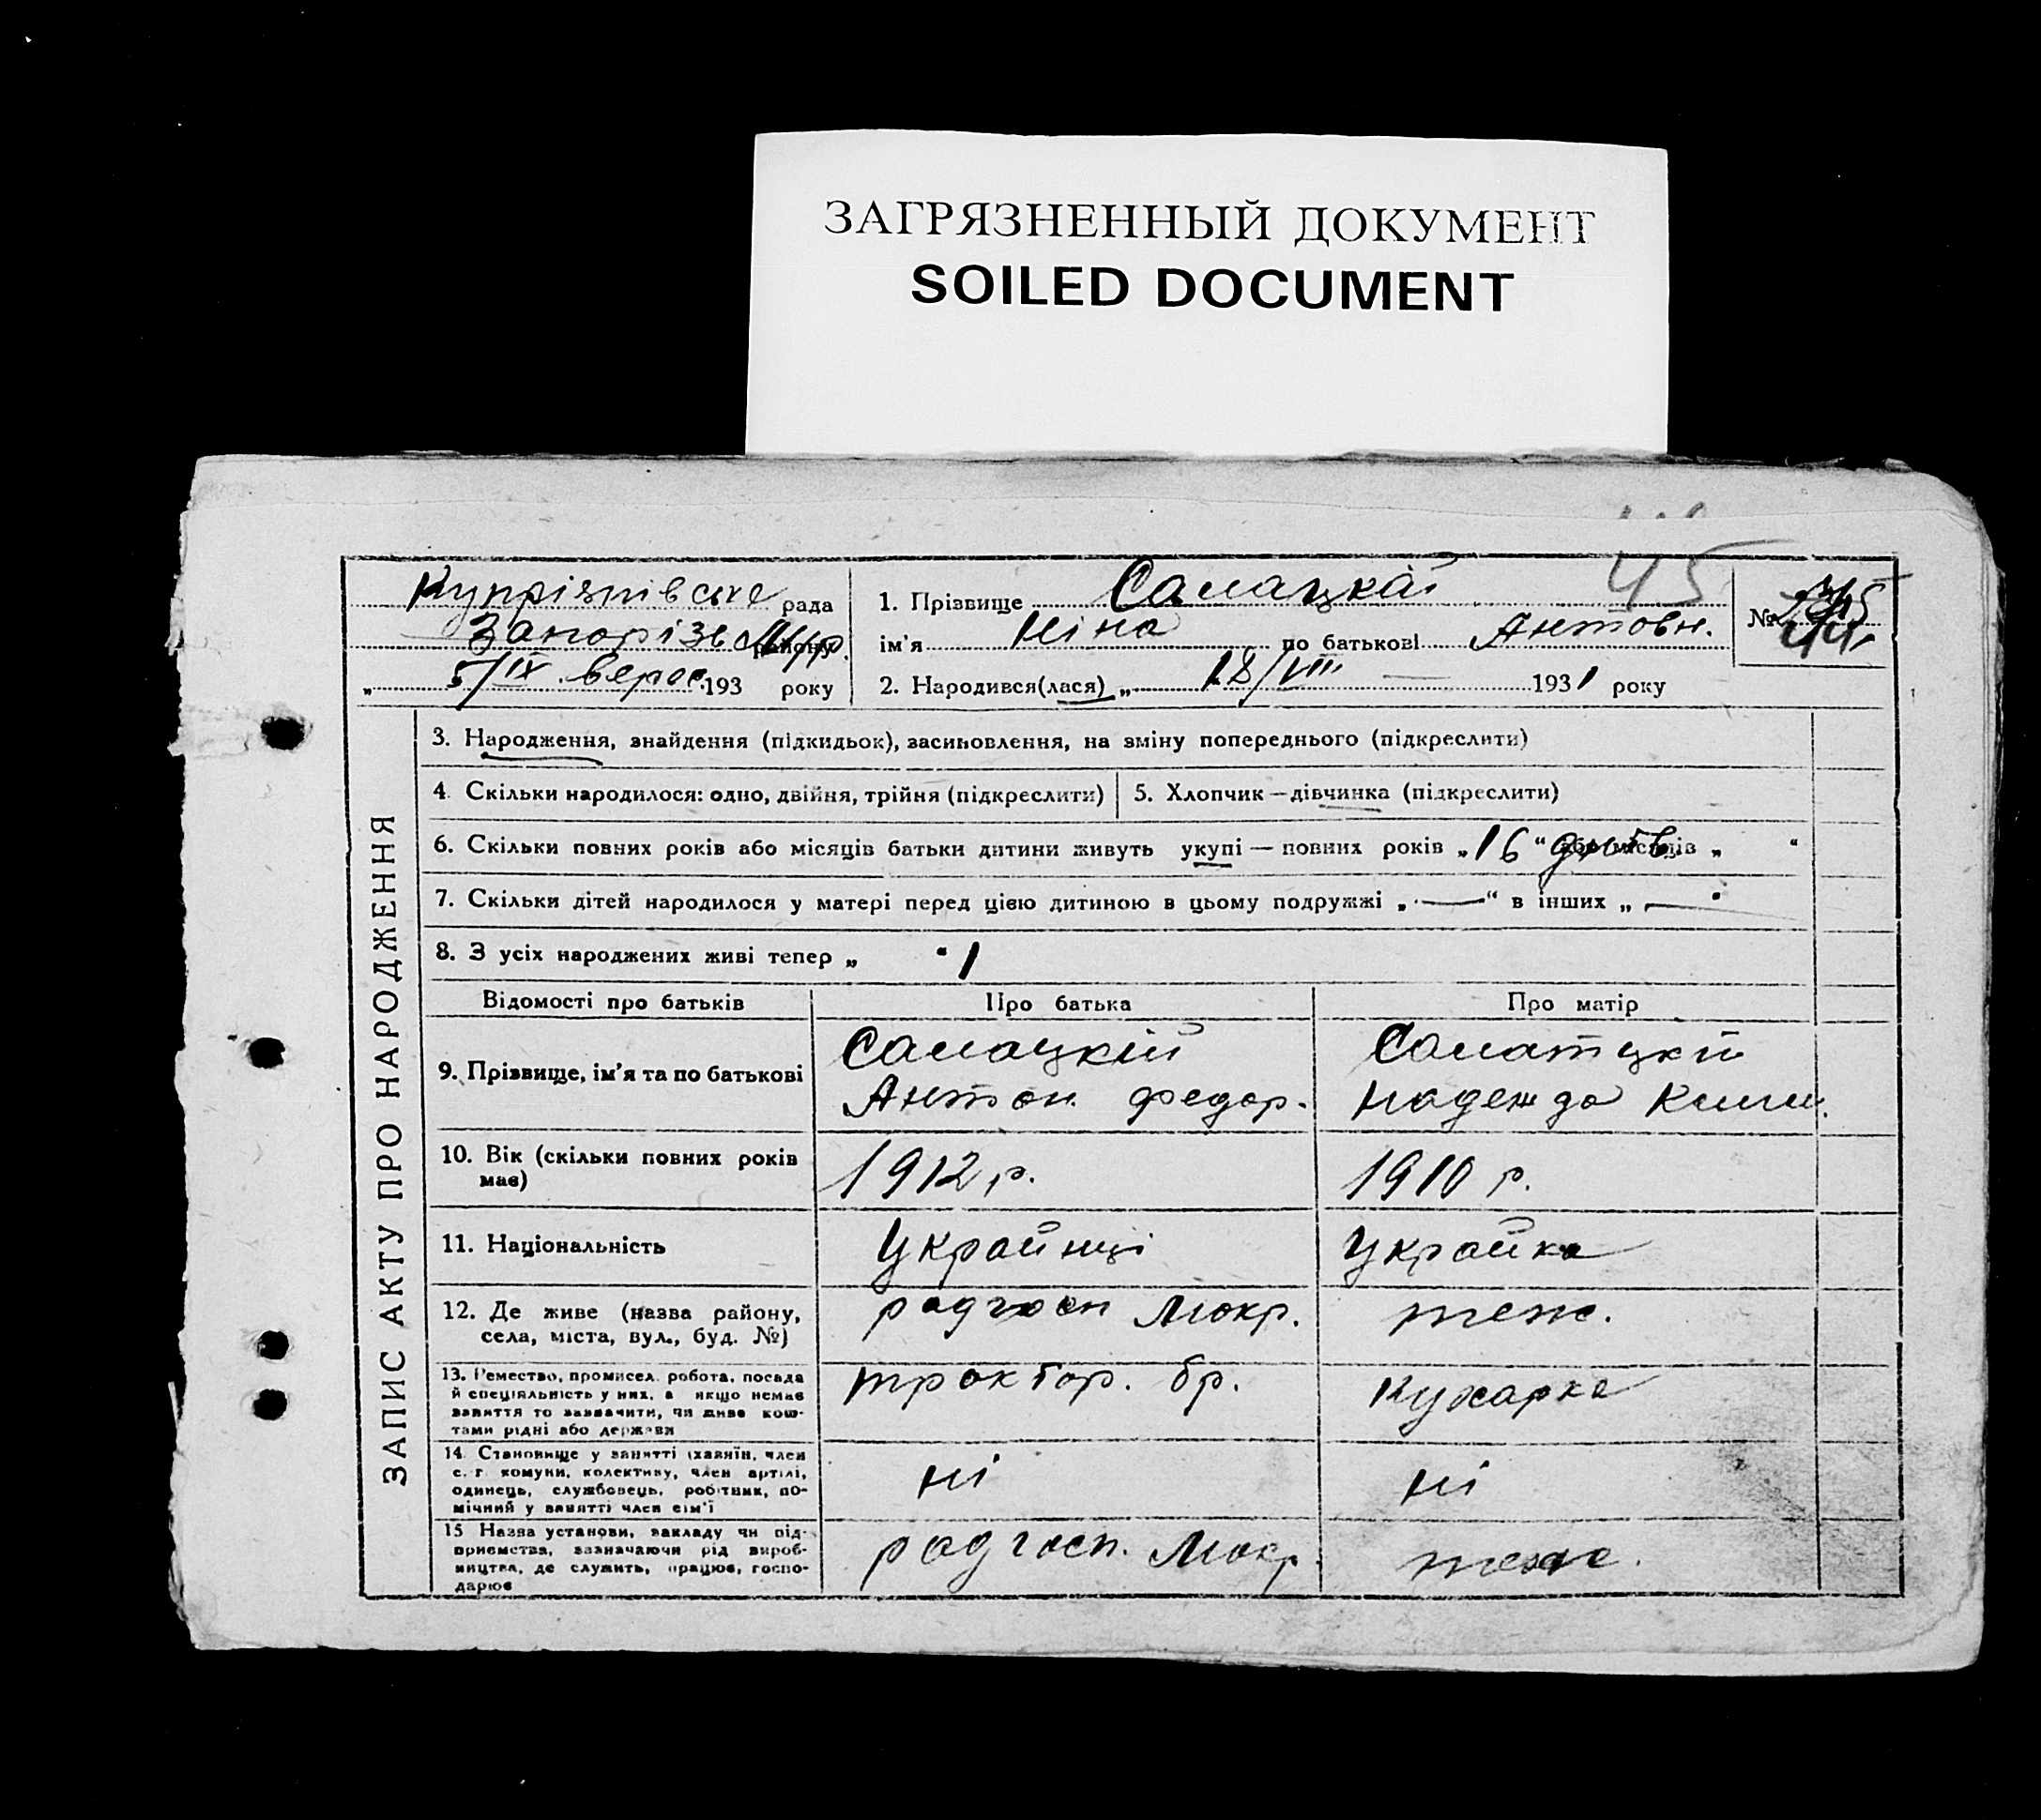 ЗАГРЯЗНЕННЫЙ ДОКУМЕНТ
SOILED DOCUMENT
45
рада
району
5/IX верес. 193 року
1. Прізвище Салацкій
ім'я Ніна по батькові Антовн.
№
2. Народився(лася) „ 18/VIII 1931 року
ЗАПИС АКТУ ПРО НАРОДЖЕННЯ
3. Народження, знайдення (підкидьок), засиновлення, на зміну попереднього (підкреслити)
4. Скільки народилося: одно, двійня, трійня (підкреслити)
5. Хлопчик — дівчинка (підкреслити)
6. Скільки повних років або місяців батьки дитини живуть укупі — повних років „16“ або місяців „ “
7. Скільки дітей народилося у матері перед цією дитиною в цьому подружжі „—“ в інших „—“
8. З усіх народжених живі тепер „ “ 1
Відомості про батьків
Про батька
Про матір
9. Прізвище, ім'я та по батькові
Салацкій
Антон Федор.
Салатцкій
Надежда
10. Вік (скільки повних років
має)
1912 р.
1910 р.
11. Національність
Українці
Українка
12. Де живе (назва району,
села, міста, вул., буд. №)
радгосп Мокр.
теж.
13. Ремество, промисел, робота, посада
й спеціяльність у них, а якщо немає
заняття то зазначити, чи живе кош-
тами рідні або держави
трактор. бр.
Кухарка
14. Становище у занятті (хазяїн, член
с. г. комуни, колективу, член артілі,
одинець, службовець, робітник, по-
мічний у занятті член сім'ї
ні
ні
15 Назва установи, закладу чи під-
приємства, зазначаючи рід вироб-
ництва, де служить, працює, госпо-
дарює
радгосп. Мокр.
теж.